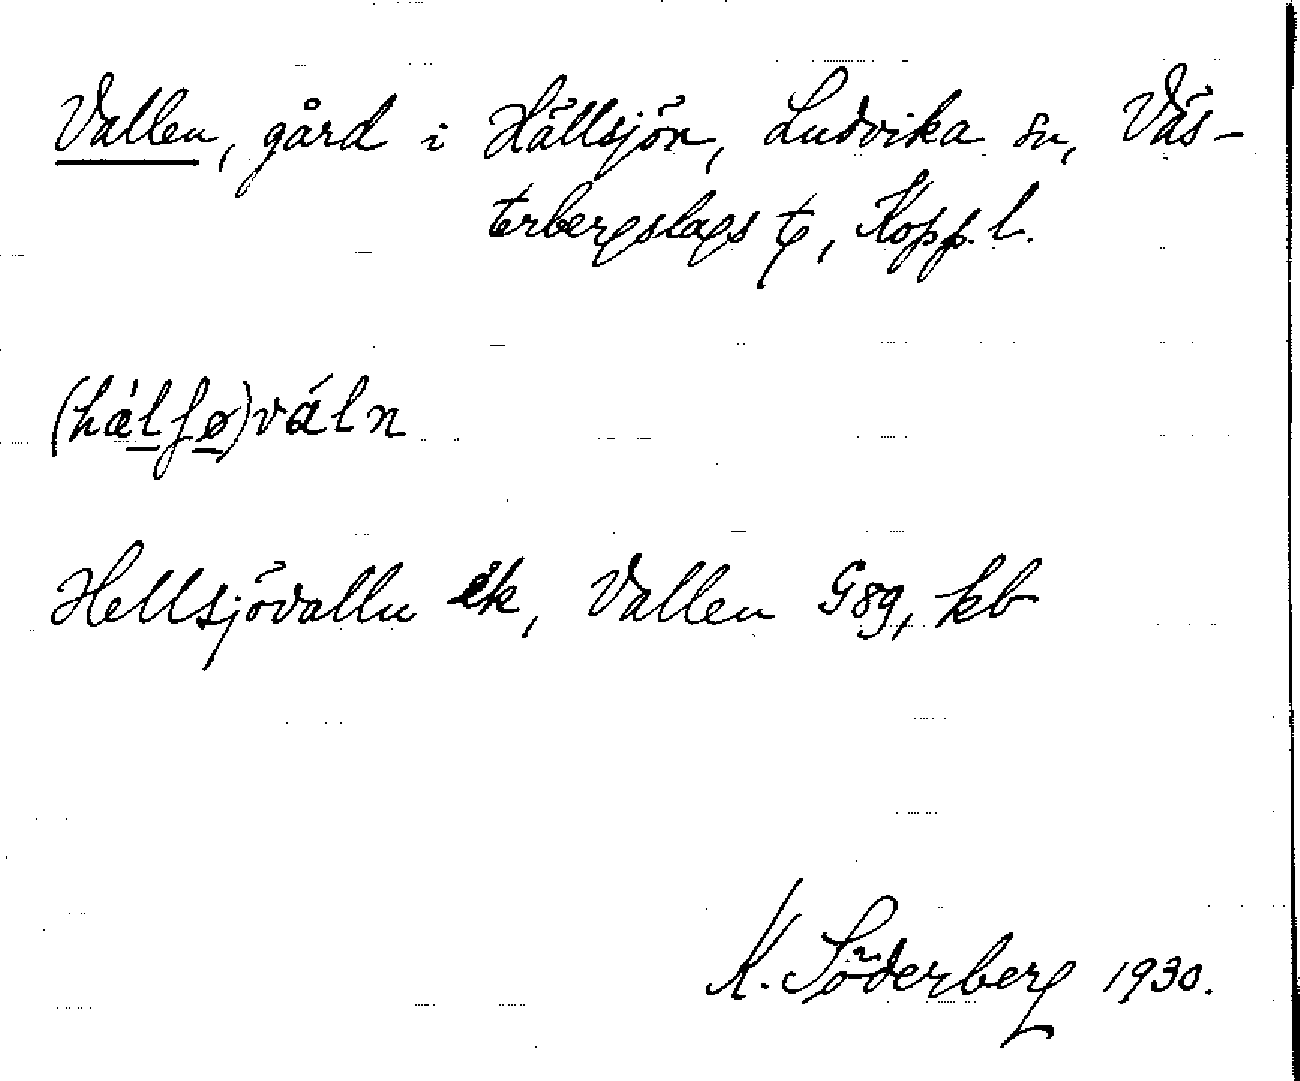 Vallen, gård i Hällsjön, Ludvika sn, Väs-
terbergslags tg, Kopp.l.
(hä́lfø)váln
Hellsjövalln ek, Vallen Gsg, kb
K. Söderberg 1930.